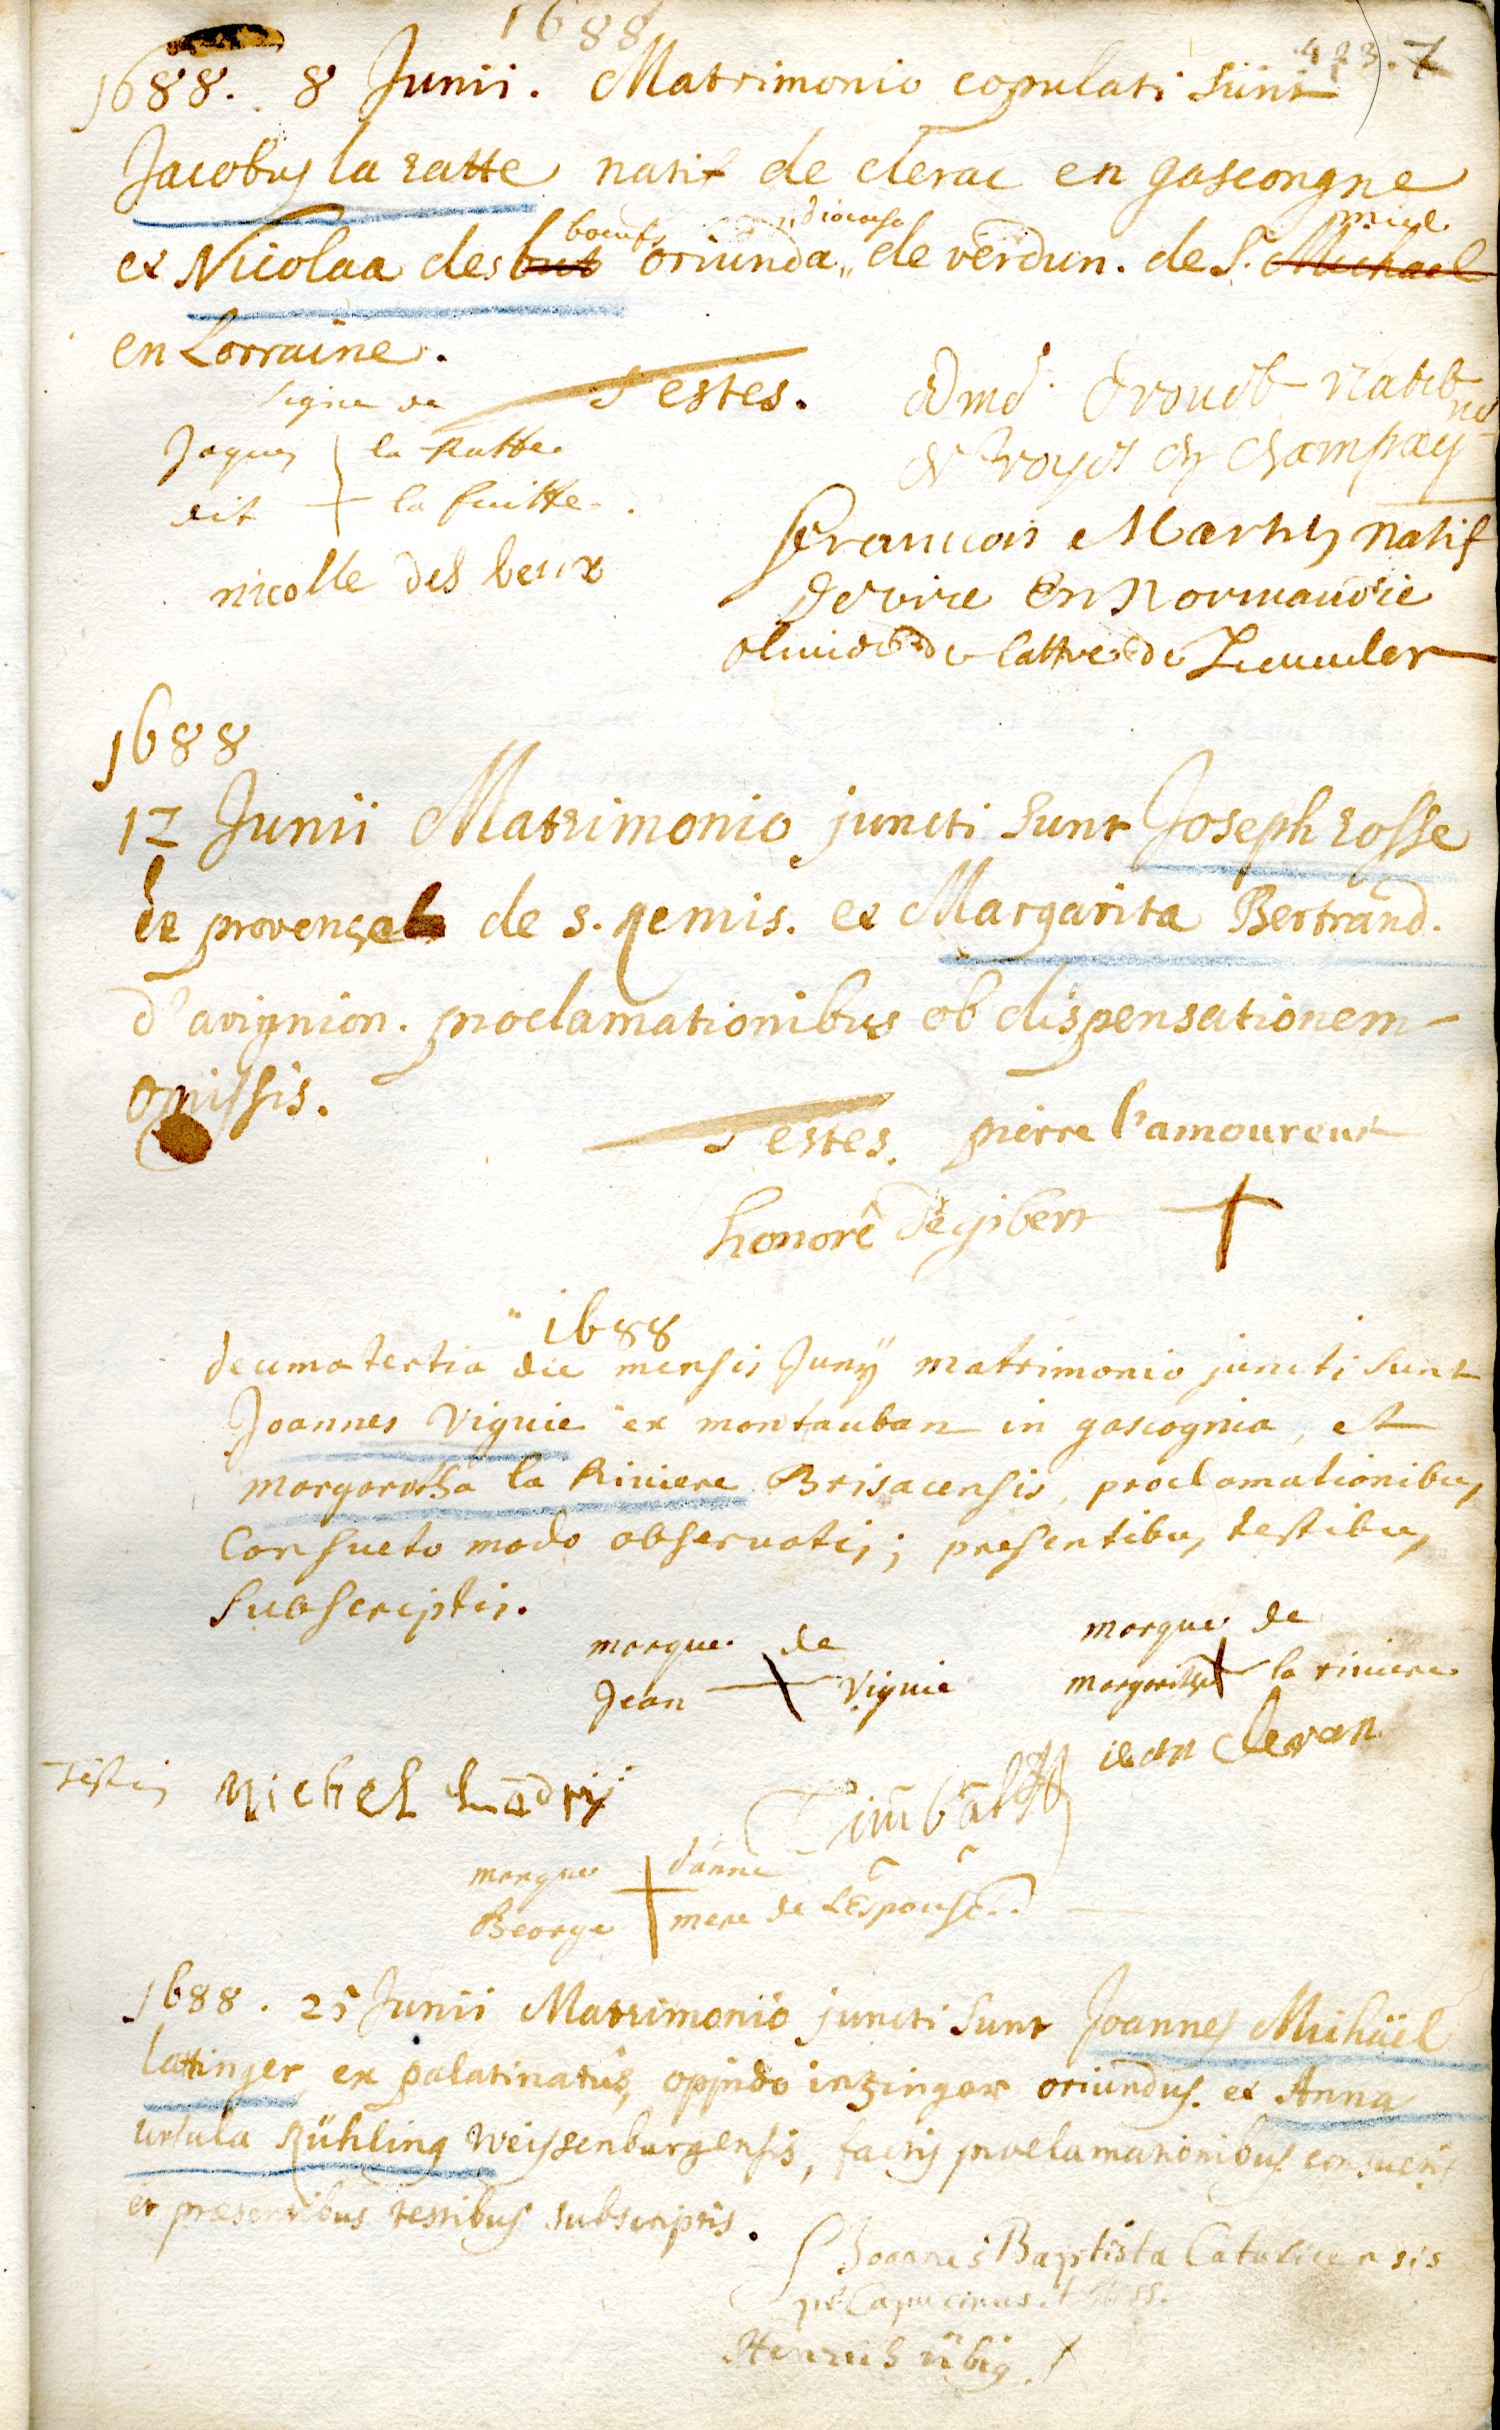 1688
423. 7
1688. 8 Junii. Matrimonio copulati sunt
Jacobus la ratte natif de clerac en gascongne
boeufs diocoese miel
et Nicolaa des but oriunda de verdun. de S. Michael
en Lorraine.
Signe de Testes.
Jaques la Ratte
dit la fuitte.
nicolle des beux
natif
de troyes champay
francois Martin natif
de vire En Normandie
de lattre de
1688
12 Junii Matrimonio juncti sunt Joseph rosse
de provençal de s. remis. et Margarita Bertrand.
d'avignion. proclamationibus ob dispensationem
omissis.
Testes. pierre l'amoureux
honorê Degibert
1688
decima tertia die mensis Junÿ matrimonio juncti sunt
Joannes Viguie ex montauban in gascognia, et
margaretha la Riviere Brisacensis, proclamationibus
Consueto modo observatis; presentibus testibus
subscriptis.
marque de
Jean Viguie
marque de
margarithe la riviere
Testis Michel
iean
marque d'anne
George mere de LEspouse
1688. 25 Junii Matrimonio juncti sunt Joannes Michäel
lattinger ex palatinatus, oppido inzinger oriundus. et Anna
Ursula Rühling Weissenburgensis, factis proclamationibus consuetis
et praesentibus testibus subscriptis.
Joannes Baptista
Capucinus
Henrich übig.